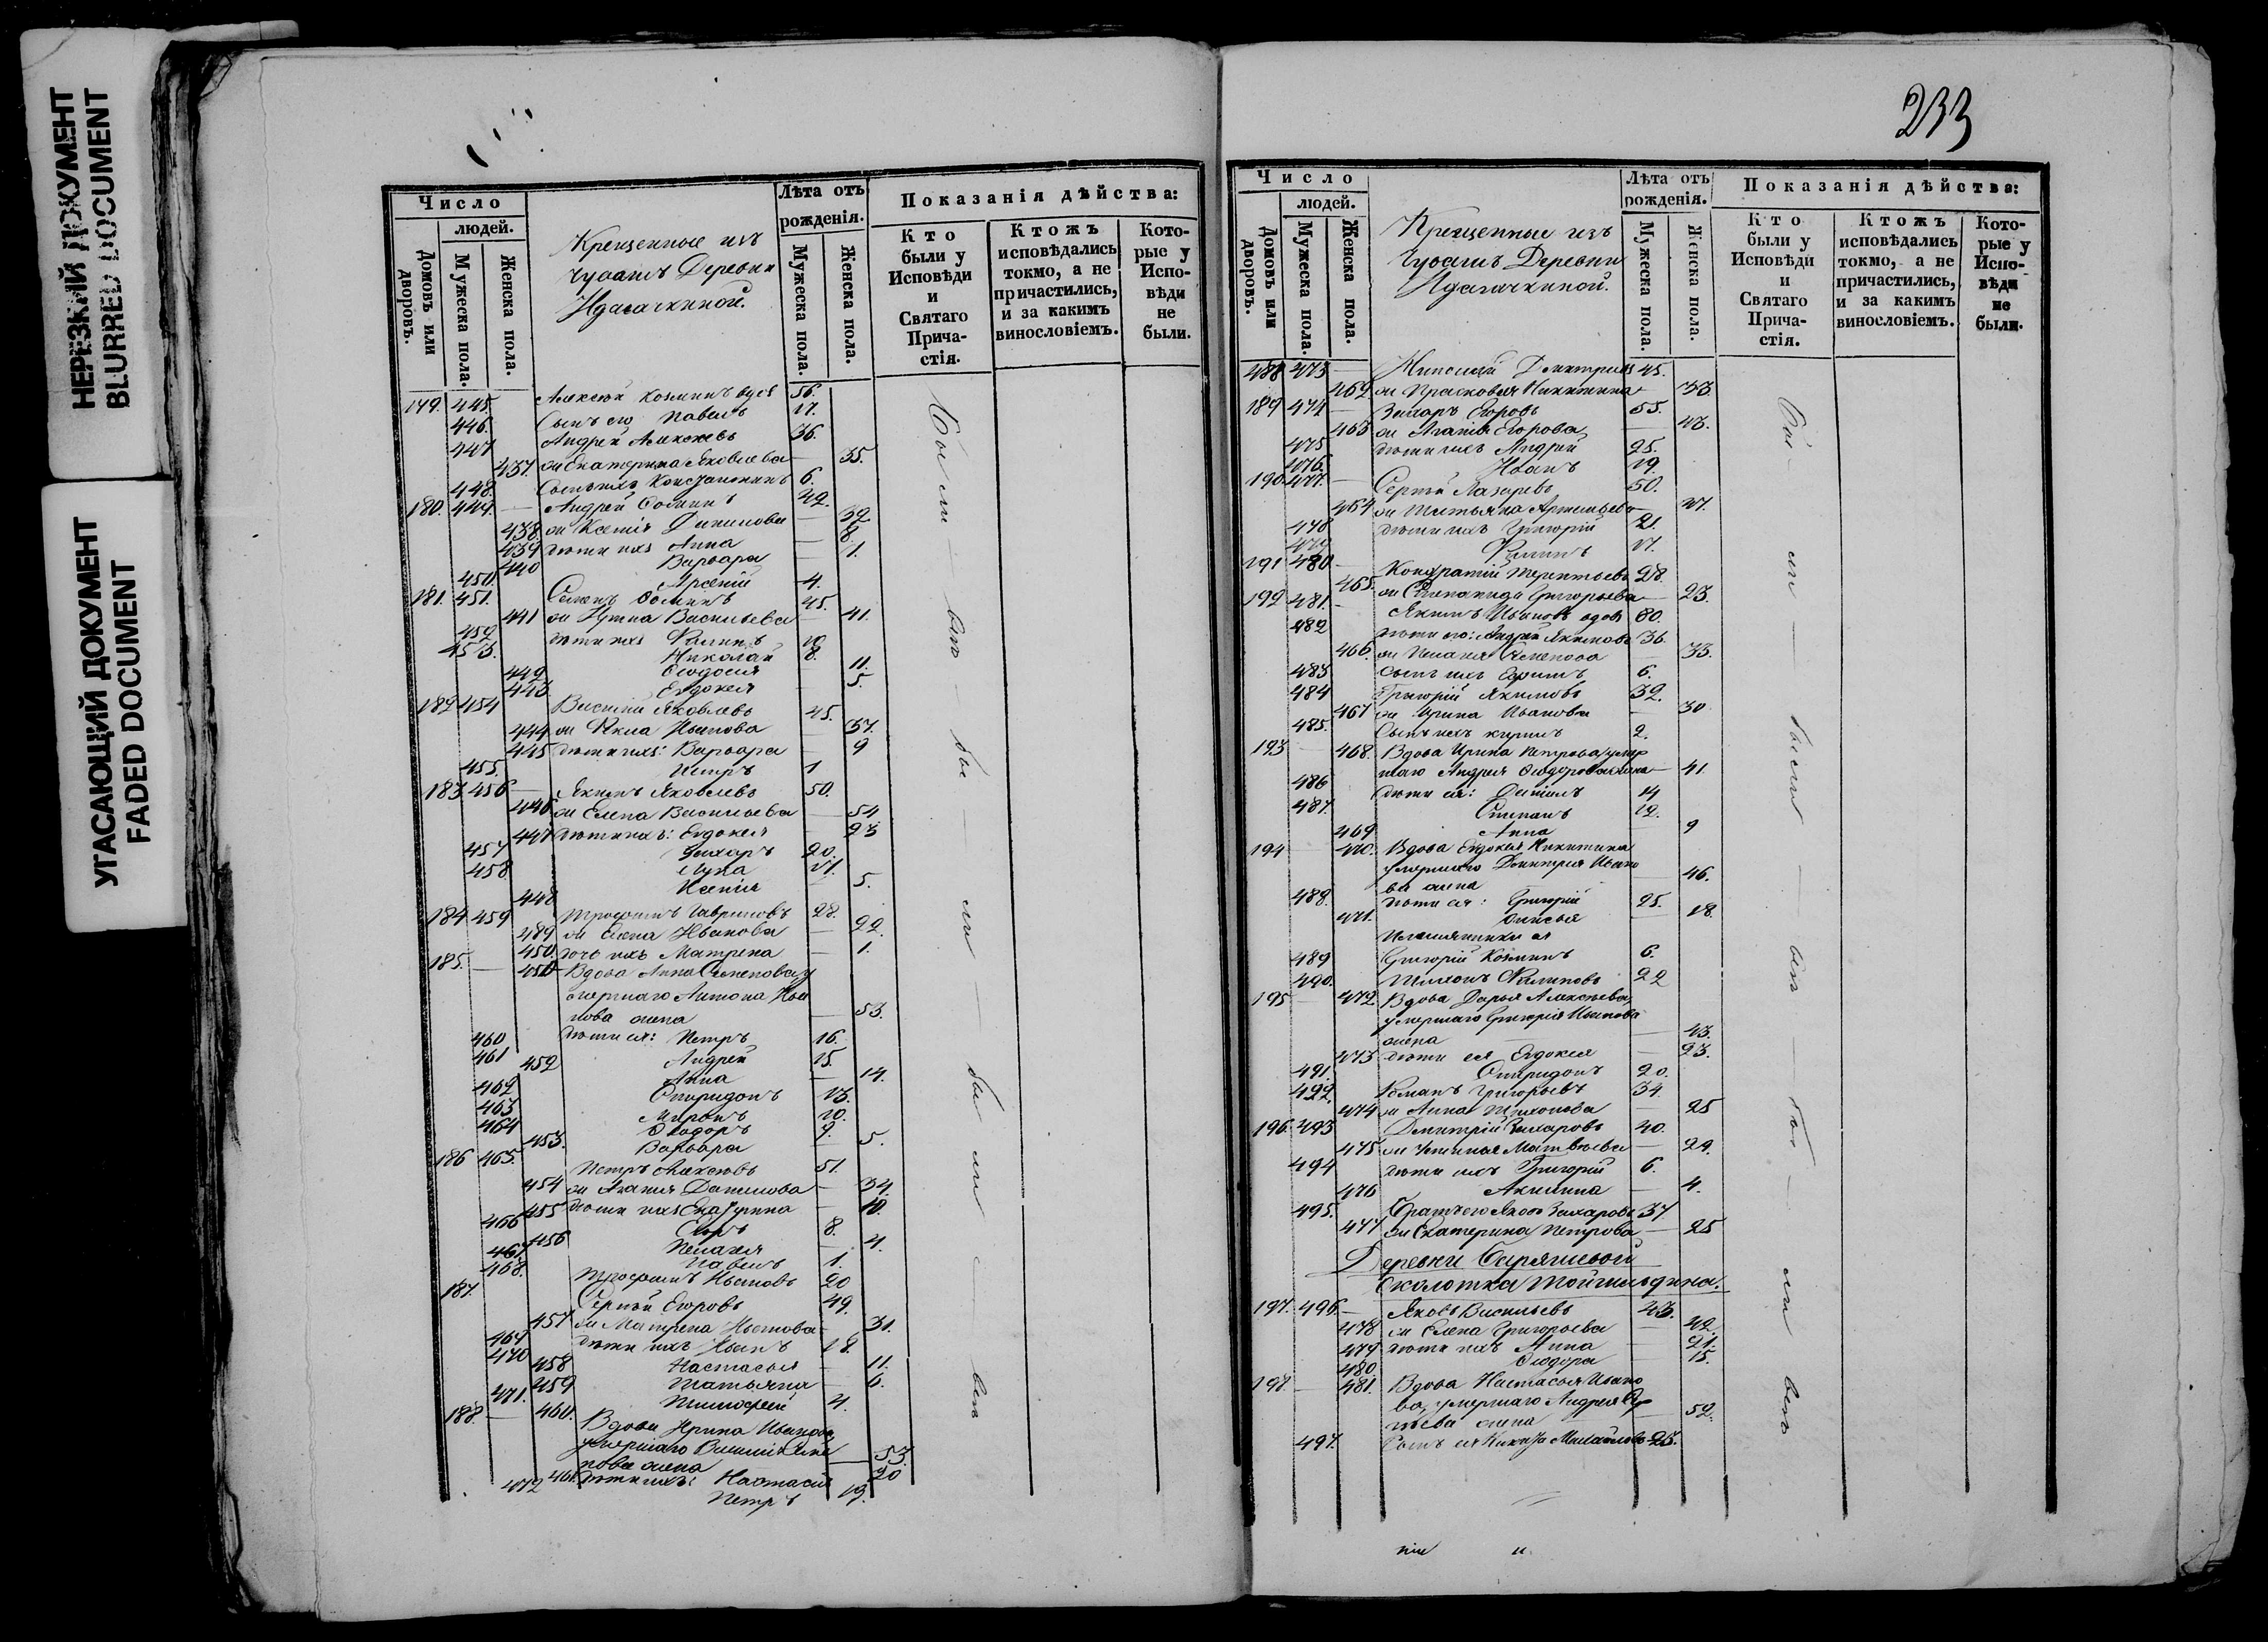 НЕРЕЗКИЙ ДОКУМЕНТ
BLURRED DOCUMENT
УГАСАЮЩИЙ ДОКУМЕНТ
FADED DOCUMENT
Число
людей.
Домовъ или дворовъ.
Мужеска пола.
Женска пола.
Крещенные изъ
чувашъ Деревни
Лѣта отъ рожденія.
Мужеска пола.
Женска пола.
Показанія дѣйства:
Кто были у Исповѣди и Святаго Прича-стія.
Ктожъ исповѣдались токмо, а не причастились, и за какимъ винословіемъ.
Кото-рые у Испо-вѣди не были.
179. 445. Алексѣй Козминъ 56.
446. Сынъ его Павелъ 17.
447 Андрей Алексѣевъ 36.
437. Екатерина Яковлева 35.
448. Сынъ ихъ Константинъ 6.
180. 449. Андрей 42.
438. Ксенія 39
439 дѣти ихъ Анна 8
440 Варвара 1.
450. Арсеній 4.
181. 451. 45.
441 Васильева 41.
452 дѣти ихъ
453. Николай 8.
442 Ѳеодосія 11.
443 Евдокия 5.
182 454 Василій Яковлевъ 45.
444 Ивановна 37.
445 дѣти ихъ: Варвара 9
455. Петръ 1
183 456 Якимъ Яковлевъ 50.
446 Елена Васильева 54
447 дѣти ихъ: Евдокия 23
457 Захаръ 20.
458 Лука 17.
448 Ксенія 5.
184 459 Трофимъ Гавриловъ 28.
449 Елена Иванова 22.
450. дочь ихъ Матрена 1.
185. Вдова Анна Семенова, у
мершаго Антона Ива
нова жена 53.
460 дѣти ея: Петръ 16.
461 Андрей 15.
452 Анна 14.
462 Спиридонъ 13.
463 Миронъ 10.
464 Ѳеодоръ 9.
453. Варвара 5.
186 465. Петръ Алексѣевъ 51.
454 Агаѳия Данилова 34.
455 дѣти ихъ Екатерина 10.
466 Егоръ 8.
456 Пелагия 4.
467 Павелъ 1.
468. Трофимъ Ивановъ 20
187. Сергѣй Егоровъ 49.
457 Матрена Иванова 31.
469 дѣти ихъ Иванъ 18.
458 Настасья 11.
459 Татьяна 6.
471. Тимофей 4.
188. 460. Вдова Ирина Иванова,
умершаго Василія
нова жена 53.
461. дѣти ихъ: Настасія 20
472 Петръ 19.
были въ были въ были въ
233
Число
людей.
Домовъ или дворовъ.
Мужеска пола.
Женска пола.
Крещенные изъ
чувашъ Деревни
Лѣта отъ рожденія.
Мужеска пола.
Женска пола.
Показанія дѣйства:
Кто были у Исповѣди и Святаго Прича-стія.
Ктожъ исповѣдались токмо, а не причастились, и за какимъ винословіемъ.
Кото-рые у Испо-вѣди не были.
488 473 Дмитріевъ 45.
462 Прасковья Никитина 33.
189 474 Захаръ Егоровъ 55.
463 Агаѳія Егорова 43.
475 дѣти ихъ Андрей 25.
476 Иванъ 19.
190 477. Сергѣй Лазаревъ 50.
464 Татьяна 47.
478 дѣти ихъ Григорій 21.
479 Филипъ 17.
191 480 Кондратій Терентьевъ 28.
465. Степанида Григорьева 23.
192 481. Якимъ Ивановъ вдовъ 80.
482 дѣти его: Андрей Якимовъ 36.
466. Пелагия Семенова 33.
483 Сынъ ихъ Ефимъ 6.
484 Григорій Якимовъ 32.
467 Ирина Иванова 30
485. Сынъ ихъ 2.
193 468. Вдова Ирина Петрова, умер
шаго Андрея Ѳеодорова жена 41.
486 дѣти ея: Данилъ 14
487. Степанъ 12.
469 Анна 9
194 470. Вдова Евдокия Никитина
умершаго Дмитрия Ивано
ва жена 46.
488. дѣти ея: Григорій 25.
471. Анисья 18.
Племянники ея
489 Григорій Козминъ 6.
490. Филиповъ 22
195 472 Вдова Дарья Алексѣева,
умершаго Григорія Иванова
жена 43.
473 дѣти ея Евдокия 23.
491. Спиридонъ 20.
492. Романъ Григорьевъ 34.
474 Анна Тихонова 25
196. 493 Дмитрій Захаровъ 40.
475 Устинья Матвѣева 29.
494 дѣти ихъ Григорій 6.
476 Акилина 4.
495. Братъ его Яковъ Захаровъ 37
477 Екатерина Петрова 25
Деревни
197. 496. Яковъ Васильевъ 43.
478 Елена Григорьева 42.
479 дѣти ихъ Анна 21.
480. Ѳеодора 15.
197. 481. Вдова Настасья Ивано
ва, умершаго Андрея
жена 52.
497. Сынъ ея Михайловъ 23.
были въ были въ